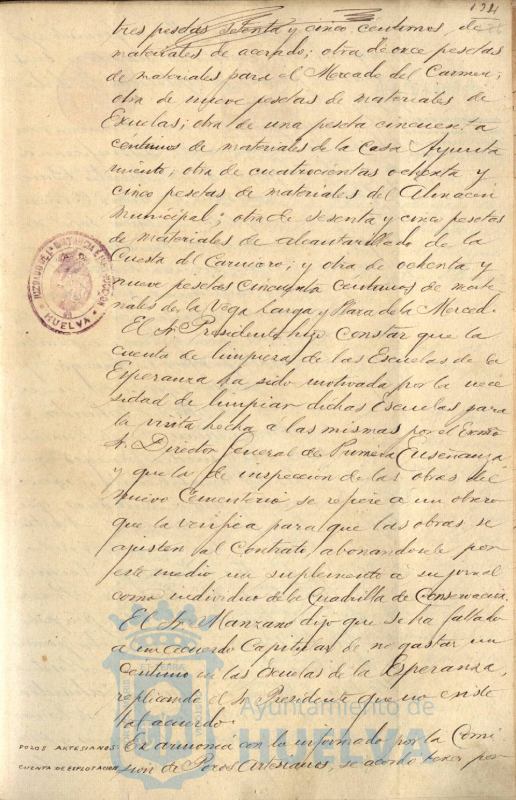 134
tres pesetas setenta y cinco centimos, de
materiales de acerado; otra de once pesetas
de materiales para el Mercado del Carmen;
otra de nueve pesetas de materiales de
Escuelas; otra de una peseta cincuenta
centimos de materiales de la Casa Ayunta
miento; otra de cuatrocientas ochenta y
cinco pesetas de materiales del Almacén
Municipal; otra de sesenta y cinco pesetas
de materiales de alcantarillado de la
Cuesta del Carnicero; y otra de ochenta y
nueve pesetas cincuenta centimos de mate
riales de la Vega Larga y Plaza de la Merced.
El Sr. Presidente hizo constar que la
cuenta de limpieza de las Escuelas de la
Esperanza ha sido motivada por la nece
sidad de limpiar dichas Escuelas para
la visita hecha a las mismas por el Excmo
Sr. Director General de Primera Enseñanza
y que la de inspeccion de las obras del
nuevo Cementerio, se refiere a un obrero
que la verifica para que las obras se
ajusten al Contrato, abonandosele por
este medio un suplemento a su jornal
como individuo de la Cuadrilla de Conservación.
El Sr. Manzano dijo que se ha faltado
a un acuerdo Capitular de no gastar un
centimo en las Escuelas de la Esperanza,
replicando el Sr. Presidente que no existe
tal acuerdo.
POZOS ARTESIANOS: En armonia con lo informado por la Comi
CUENTA DE EXPLOTACION sion de Pozos Artesianos, se acordó tener por
JUZGADO DE 1ª INSTANCIA E INSTRUCCION
HUELVA
Ayuntamiento de
HUELVA